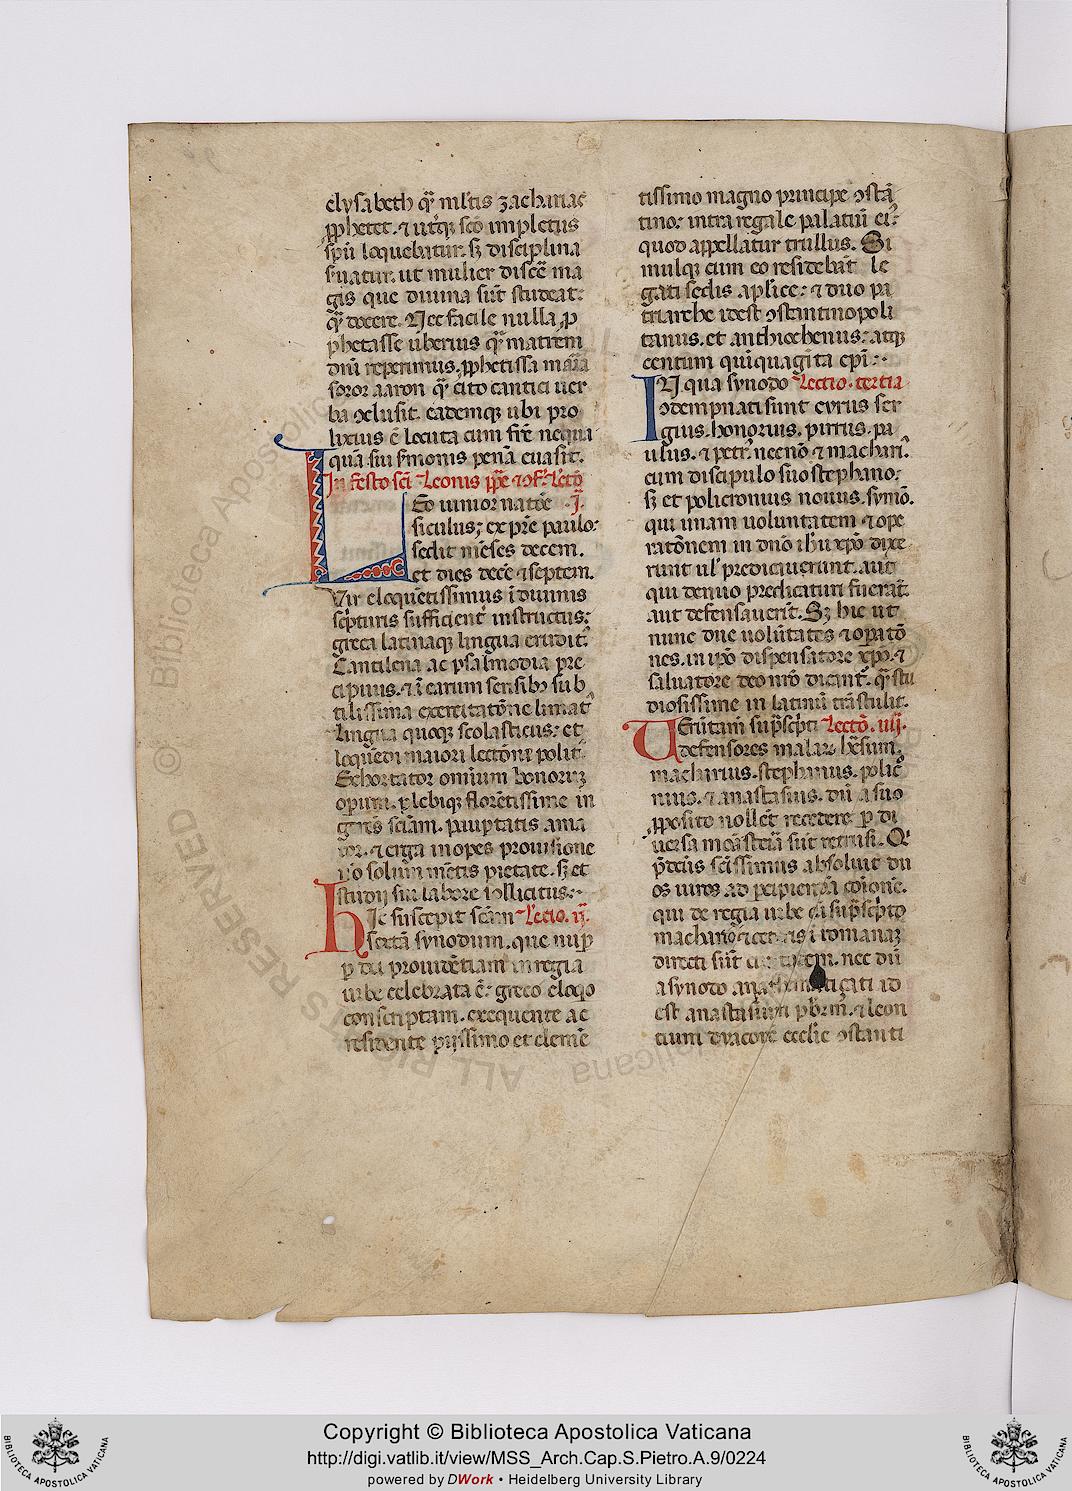 elysabeth q̄ nłtis zacharias
ꝓphetet. ⁊ utq̄ꝫ sc̄o impletus
sp̄u loquebatur. sꝫ disciplina
s̄uatur. ut mulier disc̄e ma
gis que diuina sūt studeat:
q̄ docere. Nec facile nulla ꝓ
phetasse uberius q̄ matrem
dn̄i reperimus. ꝓphetissa maria
soror aaron q̄ cito cantici uer
ba ↄclusit. eademqꝫ ubi pro
lixius ē locuta cum fr̄e nequa
quā sui s̄monis penā euasit.
In festo sc̄i Leonis pp̄e ⁊ ↄf. Lectō
Leo iunior natōe .i.
siculus; ex pr̄e paulo:
sedit mēses decem.
et dies decē ⁊ septem.
Vir eloquētissimus ī diuinis
sc̄pturis sufficient̄ instructus:
greca latinaqꝫ lingua erudit᷒:
Cantilena ac psalmodia pre
cipuus. ⁊ ī earum sensibꝫ sub
tilissima exercitatōne limat᷒
Lingua quoqꝫ scolasticus: et
loquēdi maiori lectōne polit᷒
Exhortator omium bonorum
operum. plebiqꝫ florētissime in
gereƀ sciām. paup̄tatis ama
tor. ⁊ erga inopes prouisione
nō solum mētis pietate. sꝫ et
studij sui labore sollicitus:·
Hic suscepit sc̄am Lectio. ij.
sextā synodum. que nup̄
ꝑ dei prouidētiam in regia
urbe celebrata ē: greco eloq̄o
conscriptam. exequente ac
residente pijssimo et clemē
tissimo magno principe ↄstā
tino: intra regale palatiū ei᷒:
quod appellatur trullus. Si
mulqꝫ cum eo residebāt le
gati sedis aplīce: ⁊ duo pa
triarche idest ↄstantinopoli
tanus. et anthiochenus: atqꝫ
centum quiquagīta ep̄i:·
IN qua synodo Lectio. tertia
ↄdempnati sunt cyrus ser
gius. honorius. pirrus. pa
ulus. ⁊ petr᷒. necnō ⁊ machari᷒.
cum discipulo suo stephano:
sꝫ et policronius nouus. symō.
qui unam uoluntatem ⁊ ope
ratōnem in dn̄o ih̄u xp̄o dixe
runt ul̄ predicauerunt. aut
qui denuo predicaturi fuerāt
aut defensauerīt. Sꝫ hic ut
nunc due uolūtates ⁊ oꝑatō
nes. in ip̄o dispensatore xp̄o. ⁊
saluatore deo nr̄o dicant᷒. q̄ stu
diosissime in latinū trāstulit.
Ueritam sup̄sc̄pti Lectō. iiij.
defensores malar̄ hēsum.
macharius. stephanus. policro
nius. ⁊ anastasius. dū a suo
ꝓposito nollēt recedere ꝑ di
uersa monasteria sūt retrusi. Q᷒
p̄tecūs sc̄issimus absoluit du
os uiros ad ꝑcipiendā cōionē.
qui de regia urbe cū sup̄sc̄pto
machario ⁊ ceteris ī romanaꝫ
directi sūt ciuitatem. nec dū
a synodo anathematiçati id
est anastasium pb̄rm. ⁊ leon
tium dyaconē ecclīe ↄstanti
Copyright © Biblioteca Apostolica Vaticana
http://digi.vatlib.it/view/MSS_Arch.Cap.S.Pietro.A.9/0224
powered by DWork • Heidelberg University Library